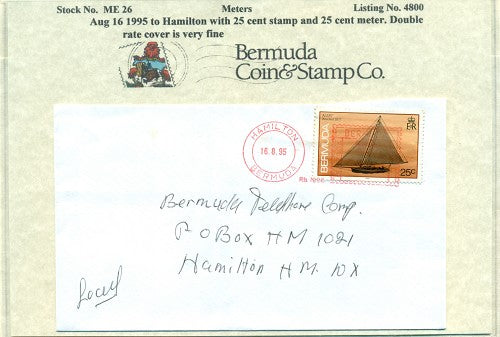 Stock No. ME 26 Meters Listing No. 4800
Aug 16 1995 to Hamilton with 25 cent stamp and 25 cent meter. Double
rate cover is very fine
Bermuda
Coin&Stamp Co.
HAMILTON
16.8.95
BERMUDA
BERMUDA
25c
Bermuda Telephone Comp.
P O Box HM 1021
Hamilton HM. 10X
Local